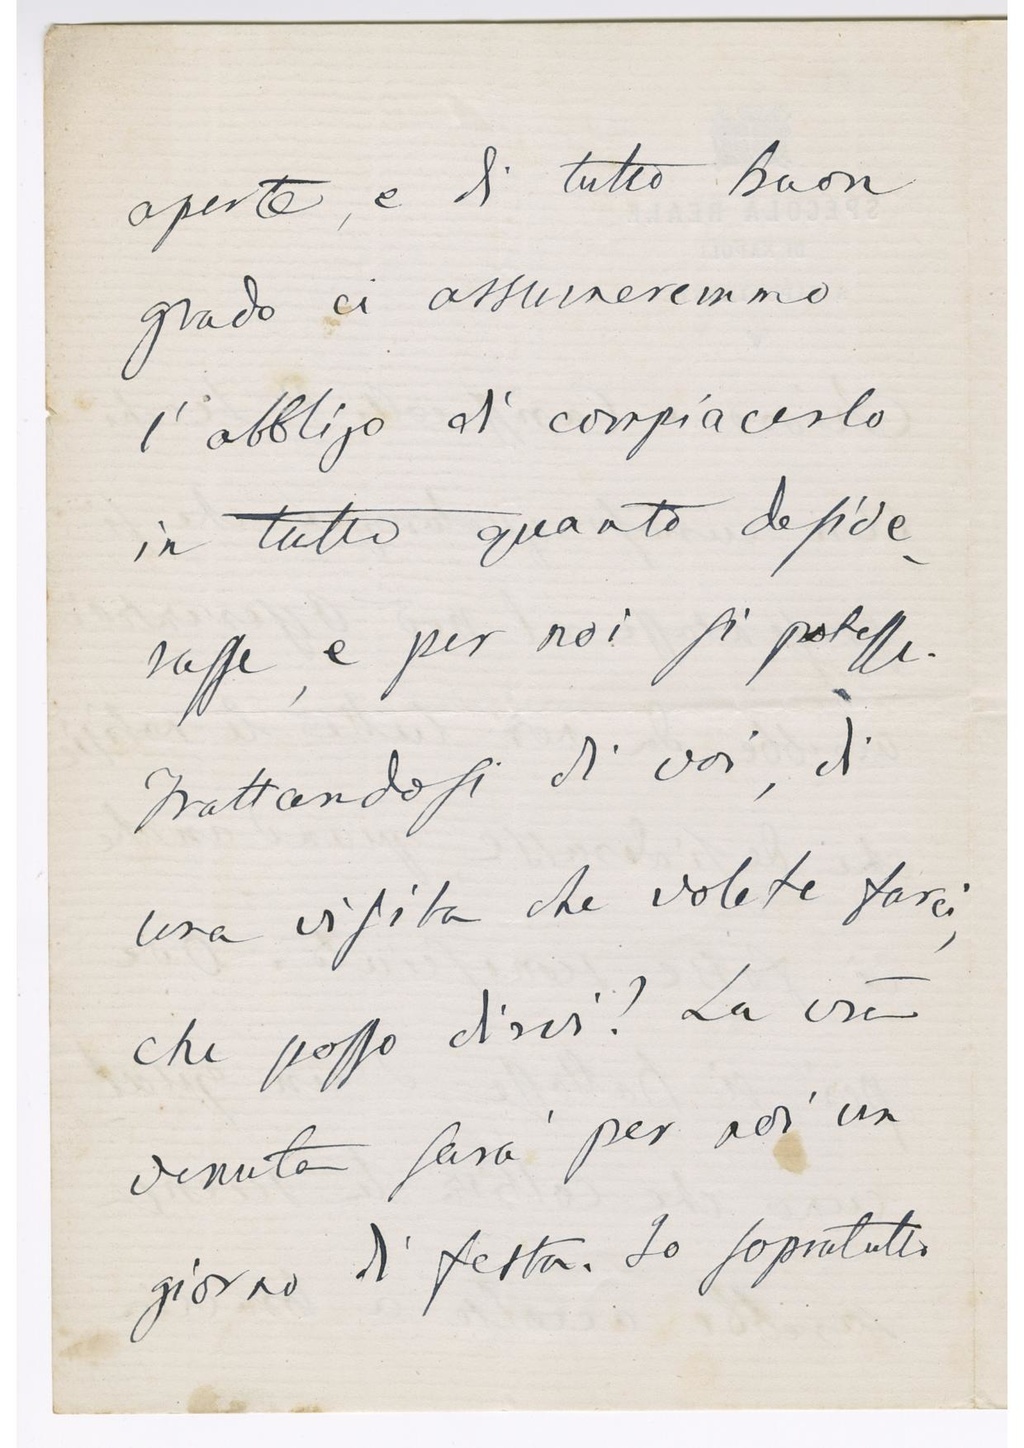 aperte, e di tutto buon
grado ci assumeremmo
l'obbligo di compiacerlo
in tutto quanto deside-
rasse, e per noi si potesse.
Trattandosi di voi, di
una visita che volete farci,
che posso dirvi? La vrā
venuta sarà per noi un
giorno di festa. Io sopratutto